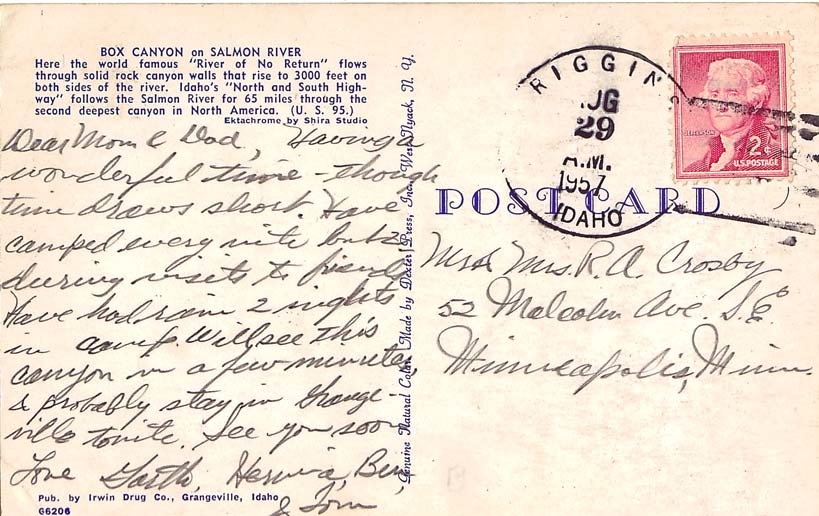 BOX CANYON on SALMON RIVER
Here the world famous "River of No Return" flows
through solid rock canyon walls that rise to 3000 feet on
both sides of the river. Idaho's "North and South High-
way" follows the Salmon River for 65 miles through the
second deepest canyon in North America. (U. S. 95.)
Ektachrome by Shira Studio
Dear Mom & Dad, Having a
wonderful time - though
time draws short. Have
camped every nite but 2
during visits to friends
Have had rain 2 nights
in camp. Will see this
canyon in a few minutes
& probably stay in Grange-
ville tonite. See you soon
Love Garth, Hermia, Ben,
& Tom
Pub. by Irwin Drug Co., Grangeville, Idaho
G6206
Genuine Natural Color Made by Dexter Press, Inc., West Nyack, N. Y.
RIGGINS
AUG
29
A.M.
1957
IDAHO
JEFFERSON
2¢
U.S. POSTAGE
POST CARD
Mr & Mrs. R. A. Crosby
52 Malcolm Ave. S.E.
Minneapolis, Minn.